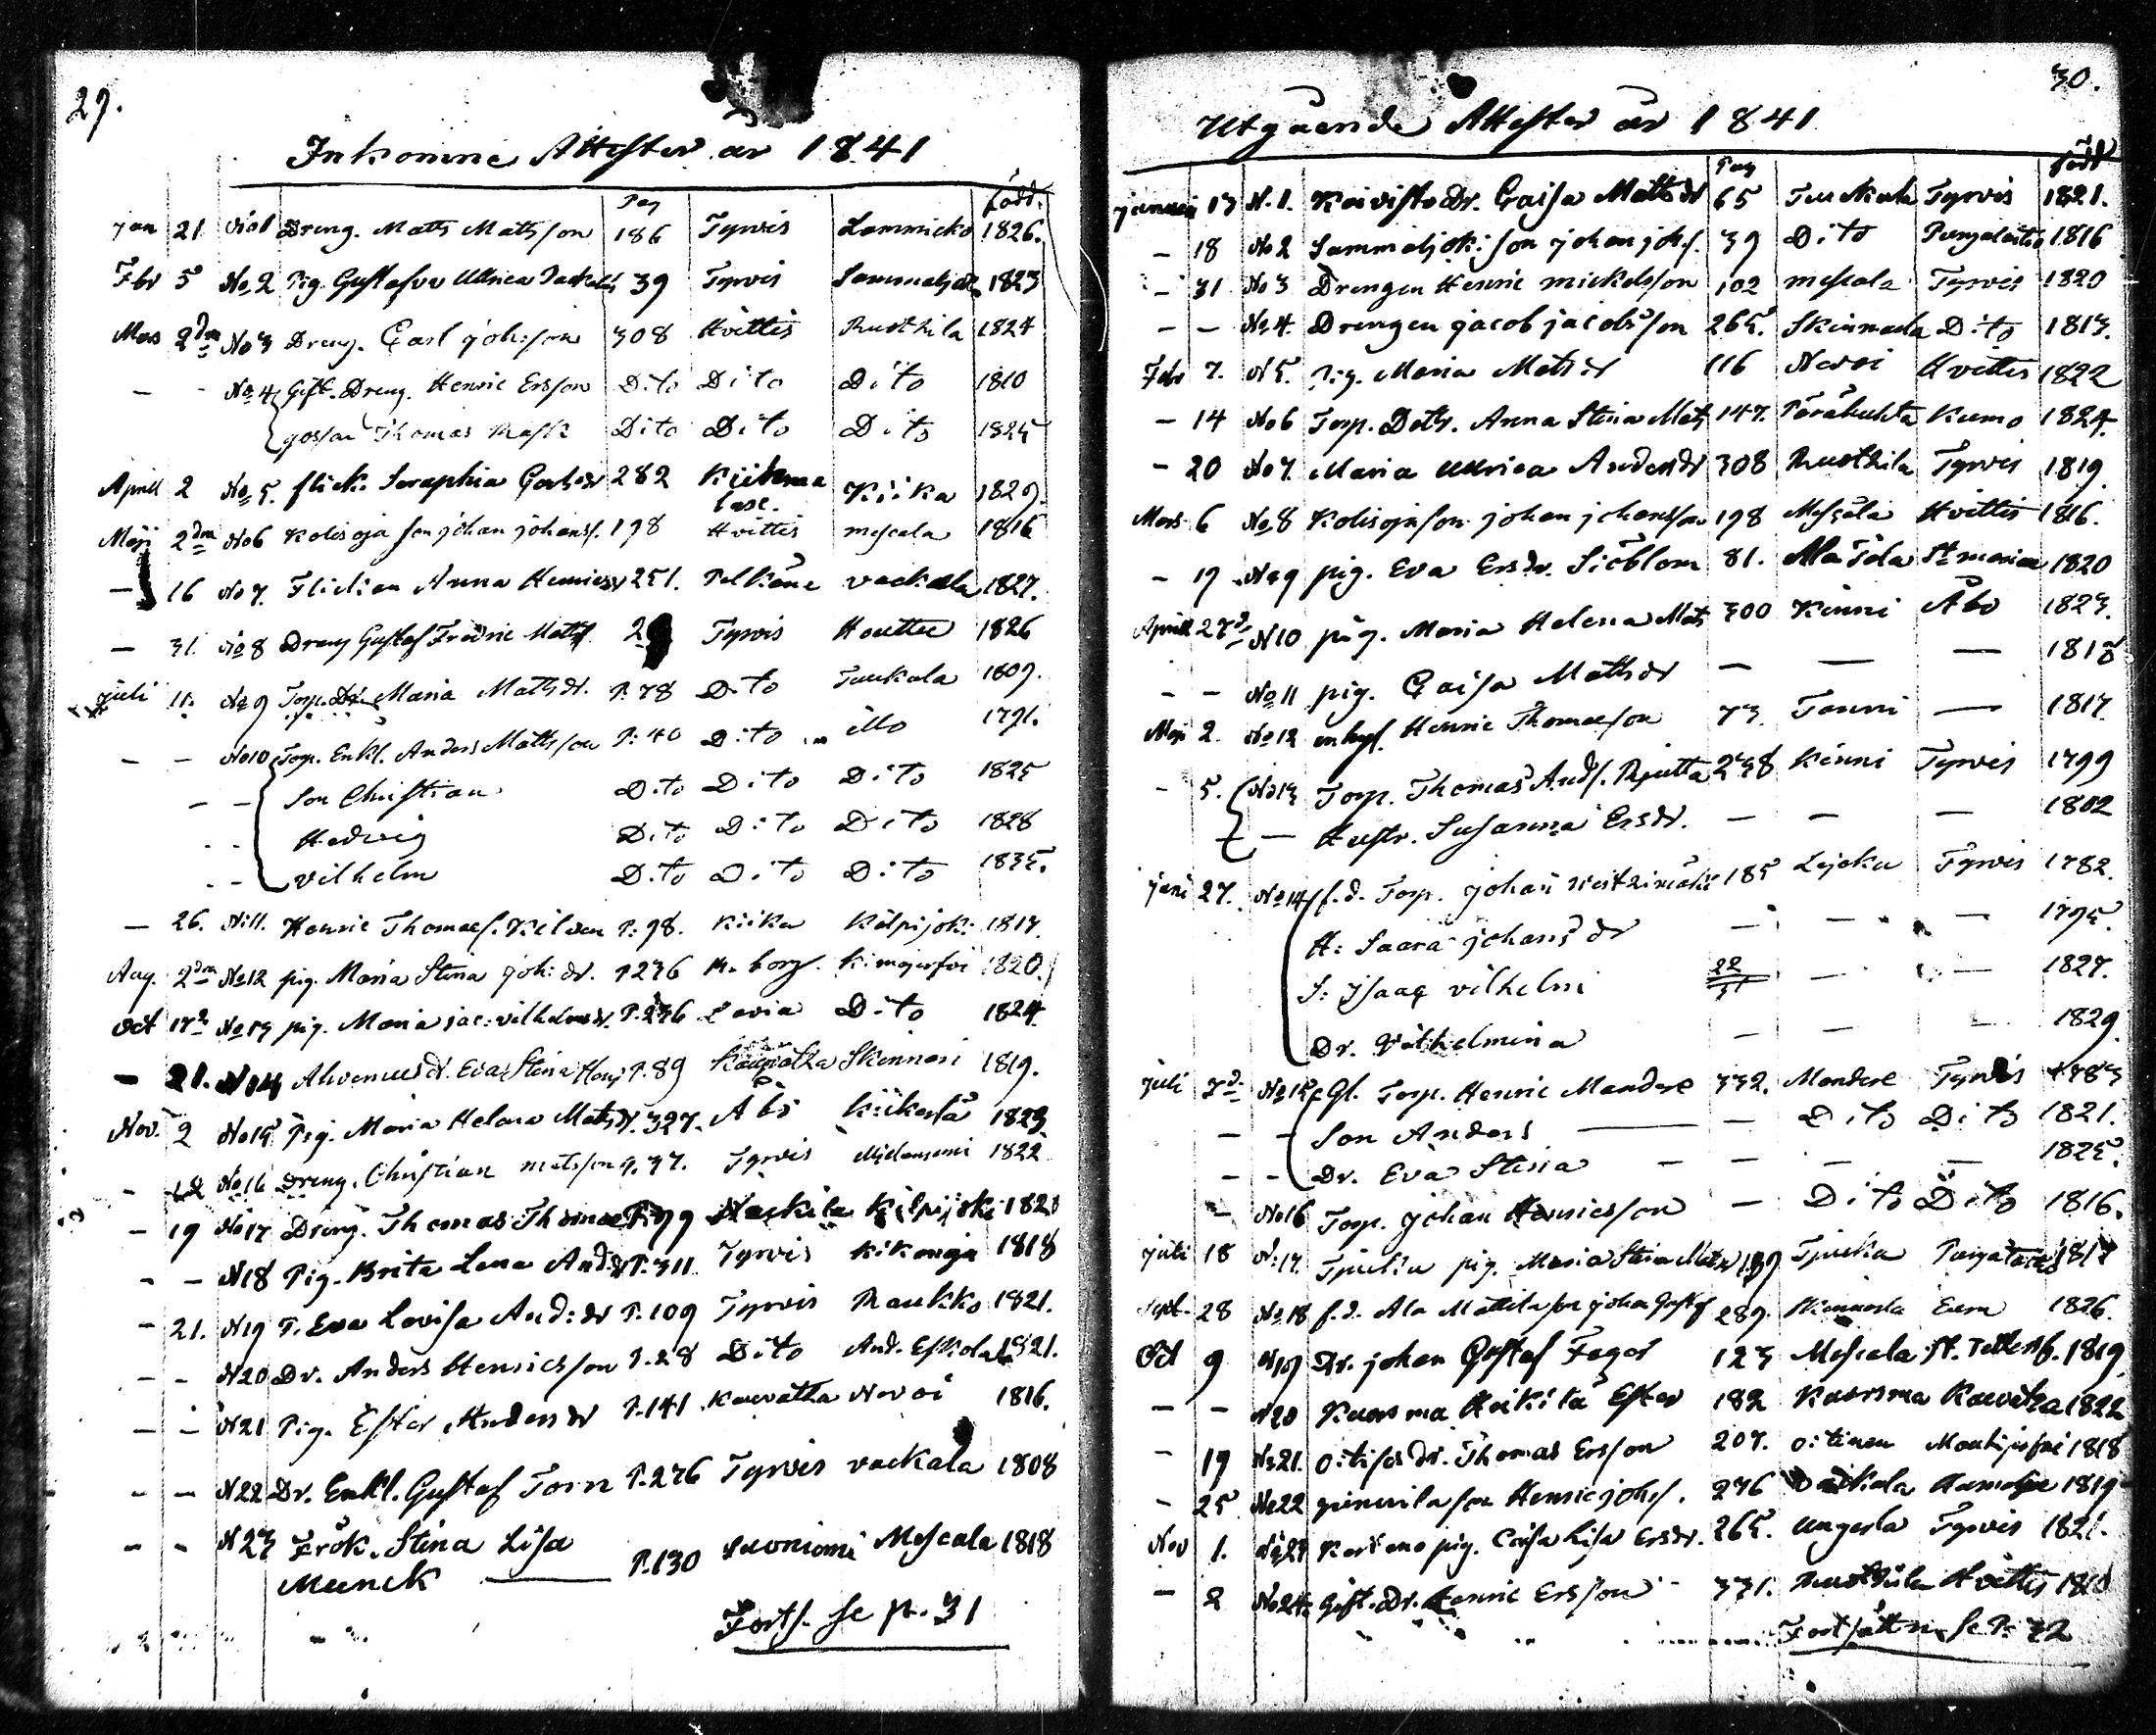 29.
Inkomne Attester år 1841
Pag född.
Jan 21 No1 Dreng. Matts Mattsson 186 Tyrvis Lammicko 1826.
Febr 5 No2 Pig. Gustafva Ulrica 39 Tyrvis 1823
Mars 2dra No3 Dreng. Carl Johsson 308 Hvittis Rusthila 1824
- - No4 Gift. Dreng. Henric Ersson Dito Dito Dito 1810
gossen Thomas Rask Dito Dito Dito 1825
April 2 No5. flick. Seraphia 282 Kiikka 1829
Maji 2dra No6 Kolisoja son Johan Johanss. 198 Hvittis Mescala 1816
- 16 No7. Flickan Anna Henricsdr 251. Pelkäne vackala 1827.
- 31. No8 Dreng Gustaf Fredric Matts. Tyrvis 1826
Juli 11. No9 Torp. Dr. Maria Matsdr. P. 78 Dito Tuukala 1809.
- - No10 Torp. Enkl. Anders Mattsson P: 40 Dito illo 1791.
- - Son Christian Dito Dito Dito 1825
- - Hedvig Dito Dito Dito 1828
- - vilhelm Dito Dito Dito 1835.
- 26. N:11. Henric Thomass. P: 98. Kiika Kilpijoki 1817.
Aug. 2dra No12 pig. Maria Stina Joh: dr. P 236 1820.
Oct 17d No13 pig. Maria Jac: vilhelmsdr. P. 236 Lavia Dito 1824.
- 21. N14 Eva Stina P. 89 Skennari 1819.
Nov. 2 No15 Pig. Maria Helena Matsdr. 327. Åbo 1823
- 12 No16 Dreng. Christian Matsson P. 37. Tyrvis 1822
- 19 No17 Dreng. Thomas Thomass. P. 99 Kilpijoki 1820
- - N18 Pig. Brita Lena And:dr P. 311 Tyrvis Kikonoja 1818
- 21. N19 P. Eva Lovisa And:dr P. 109 Tyrvis Raukko 1821.
- - N20 Dr. Anders Henricsson P. 28 Dito And. Eskola 1821.
- - N21 Pig. Ester Andersdr P. 141 Kauvatha Novoi 1816.
- - N22 Dr. Enkl. Gustaf Torn P. 276 Tyrvis vackala 1808
- - N23 Frök. Stina Lisa
Munck P. 130 Suoniemi Mescala 1818
Forts. se p. 31
30.
Utgående Attester år 1841
Pag född
Januari 17 N. 1. Koivisto Dr. Caisa Matsdr 65 Tuukala Tyrvis 1821.
- 18 No2 Sammaljoki son Johan Johs. 39 Dito 1816
- 31 No3 Drengen Henric Mickelsson 102 Mescala Tyrvis 1820
- - No4. Drengen Jacob Jacobsson 265. Skinnarla Dito 1813.
Febr 7. N5. Pig. Maria Matsdr 116 Novoi Hvittis 1822
- 14 No6 Torp. Dotr. Anna Stina Mats 147. Kumo 1824.
- 20 No7. Maria Ulrica Andersdr 308 Rusthila Tyrvis 1819.
Mars 6 No8 Kolisoja son Johan Johansson 198 Mescala Hvittis 1816.
- 19 No9 pig. Eva Ersdr. Siöblom 81. Ala Töla St. Marian 1820
April 27d N10 pig. Maria Helena Mats 300 Kinni Åbo 1823.
- - No11 pig. Caisa Matsdr - - - 1818
Maji 2. No12 Henric Thomasson 73 Tanni - 1817
- 5. No13 Torp. Thomas Ands. 238 Kinni Tyrvis 1799
- Hustr. Susanna Ersdr. - - - 1802
Juni 27. No14 f.d. Torp. Johan 185 Tyrvis 1782.
H: Saara Johansdr - - - 1795.
S: Isaac vilhelm - - 1827.
Dr. Vilhelmina - - - 1829.
Juli 7d No15 Gl. Torp. Henric Mandere 332. Mandere Tyrvis 1783
- - Son Anders - Dito Dito 1821.
- - Dr. Eva Stina - - - - 1825.
- No16 Torp. Johan Henricsson - Dito Dito 1816.
Juli 18 No17. Tjucka pig. Maria Stina Matsdr Tjucka
Sept. 28 No18 f.d. Ala Mattila son Johan Gustaf 289. Skinnarla Eura 1826.
Oct 9 N19 Dr. Johan Gustaf Fager 123 Mescala 1819
- - N20 Kuorsma Heikilä Ester 182 Kuorsma Kauvatza 1822
- 19 No21. Dr. Thomas Ersson 207. Oitinen Mouhijärfvi 1818
- 25 No22 son Henric Johs. 276 vackala 1819
Nov 1. No23 pig. Caisa Lisa Ersdr. 265. Ungerla Tyrvis 1821.
- 2 No24. Gift. Dr. Henric Ersson 331. Rusthila Hvittis 1810
Fortsättn. se P. 32